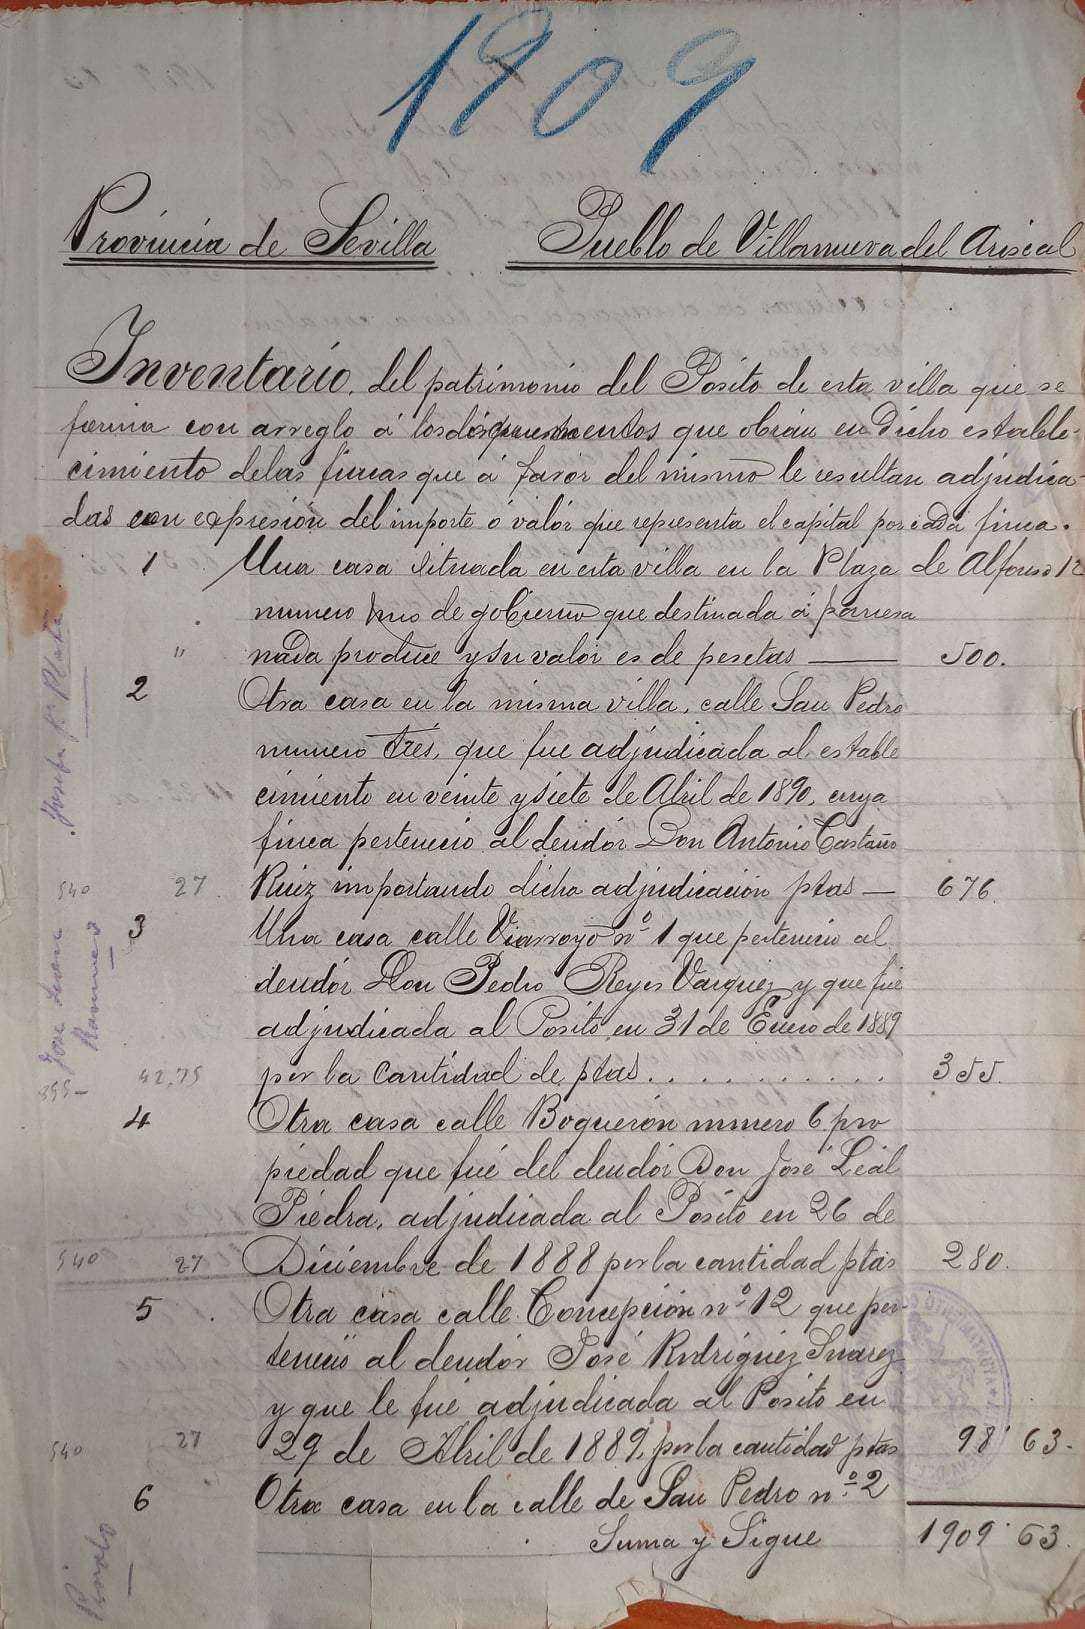 1909
Provincia de Sevilla Pueblo de Villanueva del Ariscal
Inventario, del patrimonio del Pósito de esta villa que se
forma con arreglo á los que obran en dicho estable-
cimiento de las fincas que á favor del mismo le resultan adjudica-
das con expresión del importe ó valór que representa el capital por cada finca.
1 Una casa situada en esta villa en la Plaza de Alfonso 12
numero de gobierno que destinada á
" nada produce y su valor es de pesetas — 500.
2 Otra casa en la misma villa, calle San Pedro
numero tres, que fue adjudicada al estable
cimiento en veinte y siete de Abril de 1890, cuya
finca pertenecio al deudór Don Antonio Castaño
540 27 Ruiz importando dicha adjudicación ptas — 676.
3 Una casa calle Viarroyo nº 1 que pertenecio al
deudór Don Pedro Reyes Vazquez y que fué
adjudicada al Posito en 31 de Enero de 1889
855- 42,75 por la cantidad de ptas. . . . . . . . . . . 355.
4 Otra casa calle Boquerón numero 6 pro
piedad que fué del deudór Don José Leál
Piedra, adjudicada al Pósito en 26 de
540 27 Diciembre de 1888 por la cantidad ptas 280.
5 Otra casa calle Concepción nº 12 que per-
tenecio al deudór José Rodriguez Suarez
y que le fué adjudicada al Posito en
540 27 29 de Abril de 1889, por la cantidad ptas 98' 63.
6 Otra casa en la calle de San Pedro nº 2
Suma y Sigue 1909' 63.
Josefa
Jose